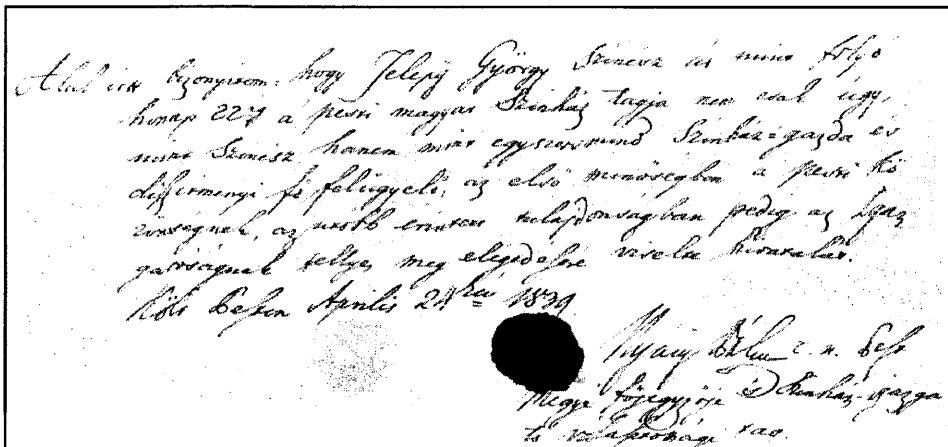 Alul irt bizonyitom: hogy Telepÿ György Szinész úr mint folyó
honap 22ig a pesti magyar Szinház tagja nem csak úgy,
mint Szinész hanem mint egyszersmind Szinház-gazda és
diszitményi fő felügyelő, az első minőségben a pesti Kö
zönségnek, az utóbb érintett tulajdonságban pedig az Igaz
gatóságnak tellyes meg elégedésére viselte hivatalát.
Költ Pesten Aprilis 24kén 1839
Nyáry Pál m.k. t. n. Pest
Megye főjegyzője és Szinház-igazga
tó választmányi tag.